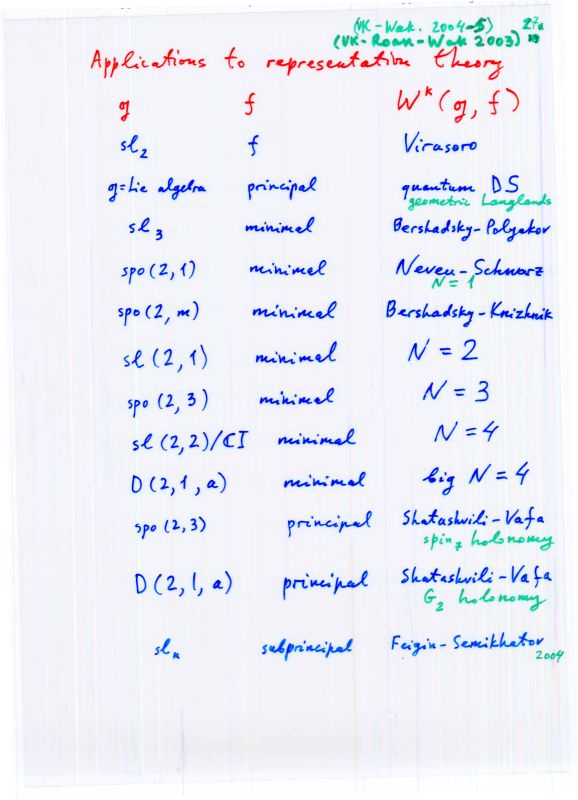 (VK-Wak. 2004-5) 27a
(VK-Roan-Wak 2003)
Applications to representation theory
g f W^k(g, f)
sl_2 f Virasoro
g=Lie algebra principal quantum DS
geometric Langlands
sl_3 minimal Bershadsky-Polyakov
spo(2,1) minimal Neveu-Schwarz
N=1
spo(2,m) minimal Bershadsky-Knizhnik
sl(2,1) minimal N=2
spo(2,3) minimal N=3
sl(2,2)/CI minimal N=4
D(2,1,a) minimal big N=4
spo(2,3) principal Shatashvili-Vafa
spin_7 holonomy
D(2,1,a) principal Shatashvili-Vafa
G_2 holonomy
sl_n subprincipal Feigin-Semikhatov
2004